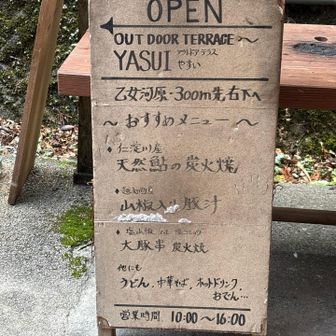 OPEN
OUTDOOR TERRACE〜
YASUI アウトドアテラス やすい
乙女河原・300m先右下へ
〜おすすめメニュー〜
◆仁淀川産
天然鮎の炭火焼
山椒入り豚汁
大豚串 炭火焼
他にも
うどん、中華そば、ホットドリンク、
おでん…
営業時間 10:00〜16:00